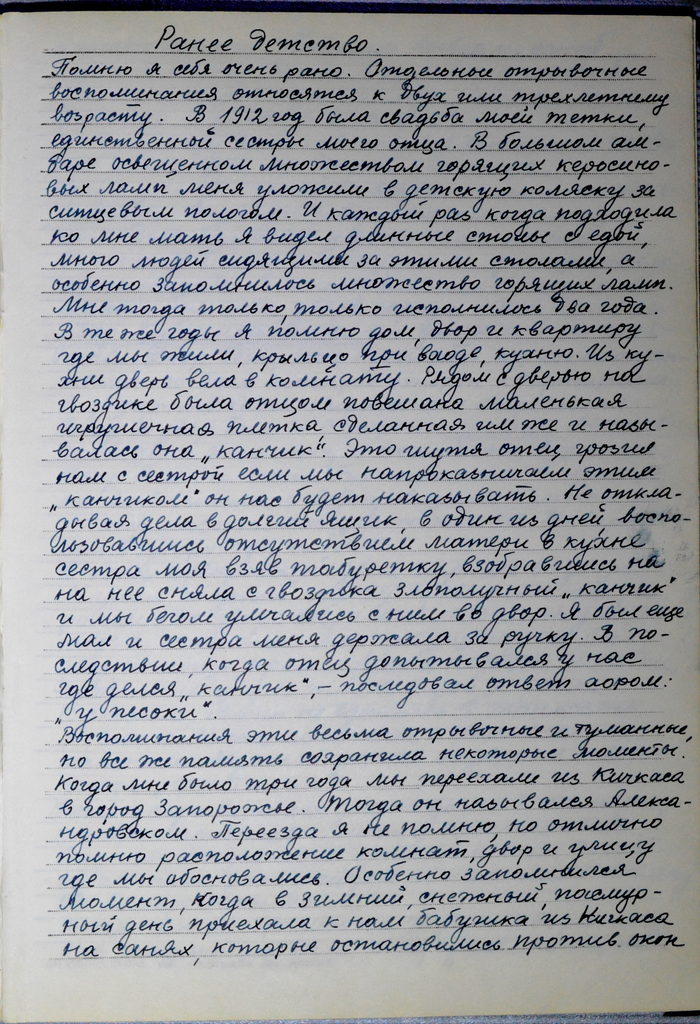 Ранее детство.
Помню я себя очень рано. Отдельные отрывочные
воспоминания относятся к двух или трехлетнему
возрасту. В 1912 год была свадьба моей тетки,
единственной сестры моего отца. В большом ам-
баре освещенном множеством горящих керосино-
вых ламп меня уложили в детскую коляску за
ситцевым пологом. И каждый раз когда подходила
ко мне мать я видел длинные столы с едой,
много людей сидящими за этими столами, а
особенно запомнилось множество горящих ламп.
Мне тогда только, только исполнилось два года.
В те же годы я помню дом, двор и квартиру
где мы жили, крыльцо при входе, кухню. Из ку-
хни дверь вела в комнату. Рядом с дверью на
гвоздике была отцом повешана маленькая
игрушечная плетка сделанная им же и назы-
валась она „канчик". Это шутя отец грозил
нам с сестрой если мы напроказничаем этим
„канчиком" он нас будет наказывать. Не откла-
дывая дела в долгий ящик, в один из дней, воспо-
льзовавшись отсутствием матери в кухне
сестра моя взяв табуретку, взобравшись на
на нее сняла с гвоздика злополучный „канчик"
и мы бегом умчались с ним во двор. Я был еще
мал и сестра меня держала за ручку. В по-
следствии, когда отец допытывался у нас
где делся „канчик", – последовал ответ хором:
„у песоки".
Воспоминания эти весьма отрывочные и туманные,
но все же память сохранила некоторые моменты.
Когда мне было три года мы переехали из Кичкаса
в город Запорожье. Тогда он назывался Алекса-
ндровском. Переезда я не помню, но отлично
помню расположение комнат, двор и улицу
где мы обосновались. Особенно запомнился
момент, когда в зимний, снежный, пасмур-
ный день приехала к нам бабушка из Кичкаса
на санях, которые остановились против окон